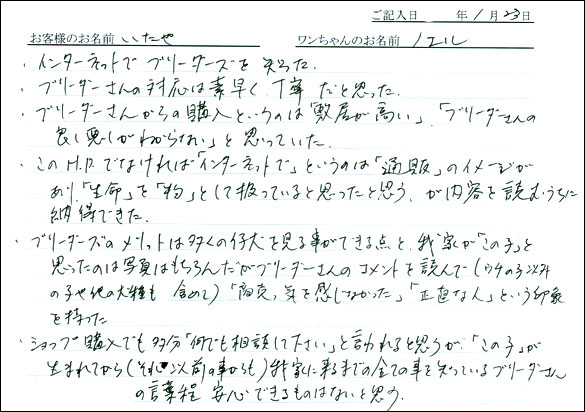 ご記入日　　年 1月 23日
お客様のお名前 いたや　ワンちゃんのお名前 ノエル
・インターネットでブリーダーズを知った.
・ブリーダーさんの対応は素早く、丁寧だと思った.
・ブリーダーさんからの購入というのは「敷居が高い」、「ブリーダーさんの
良し悪しがわからない」と思っていた.
・このH.P.でなければ「インターネットで」というのは「通販」のイメージが
あり、「生命」を「物」として扱っていると思ったと思う、が内容を読むうちに
納得できた.
・ブリーダーズのメリットは多くの仔犬を見る事ができる点と、我家が「この子」と
思ったのは写真はもちろんだがブリーダーさんのコメントを読んで（ウチの子以外
の子や他の犬種も含めて）「商売っ気を感じなかった」「正直な人」という印象
を持った
・ショップ購入でも多分「何でも相談して下さい」と言われると思うが、「この子」が
生まれてから（それ以前の事からも）我家に来るまでの全ての事を知っているブリーダーさん
の言葉程 安心できるものはないと思う.